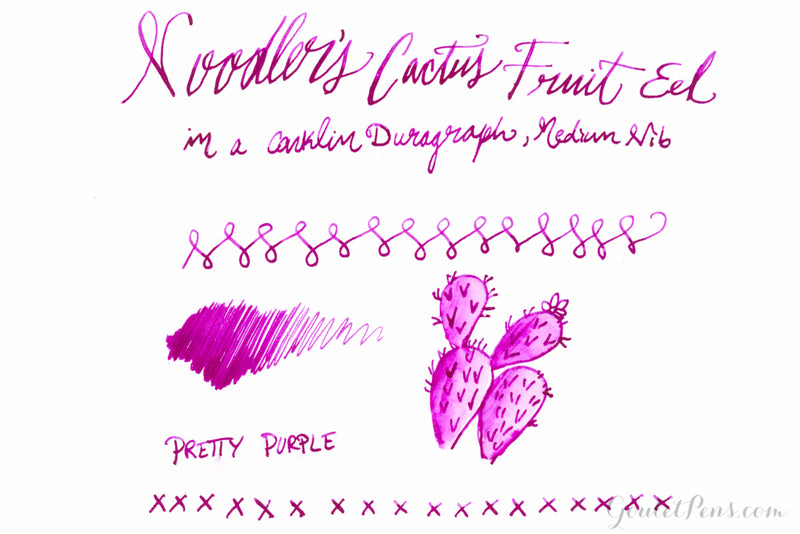 Noodler's Cactus Fruit Eel
in a Conklin Duragraph, Medium Nib
PRETTY PURPLE
x x x x x x x x x x x x x x x x x x x
GouletPens.com